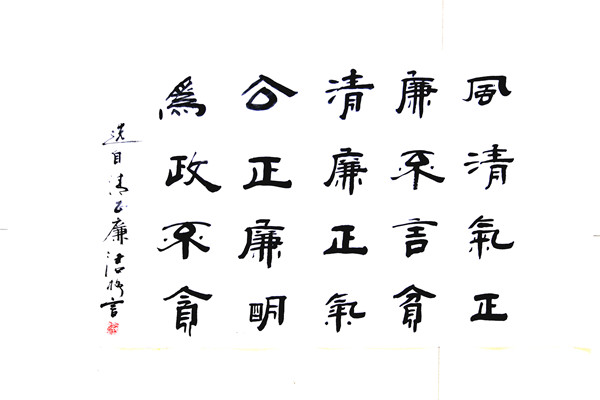 風清氣正
廉不言貧
清廉正氣
公正廉明
爲政不貪
选自清正廉洁格言